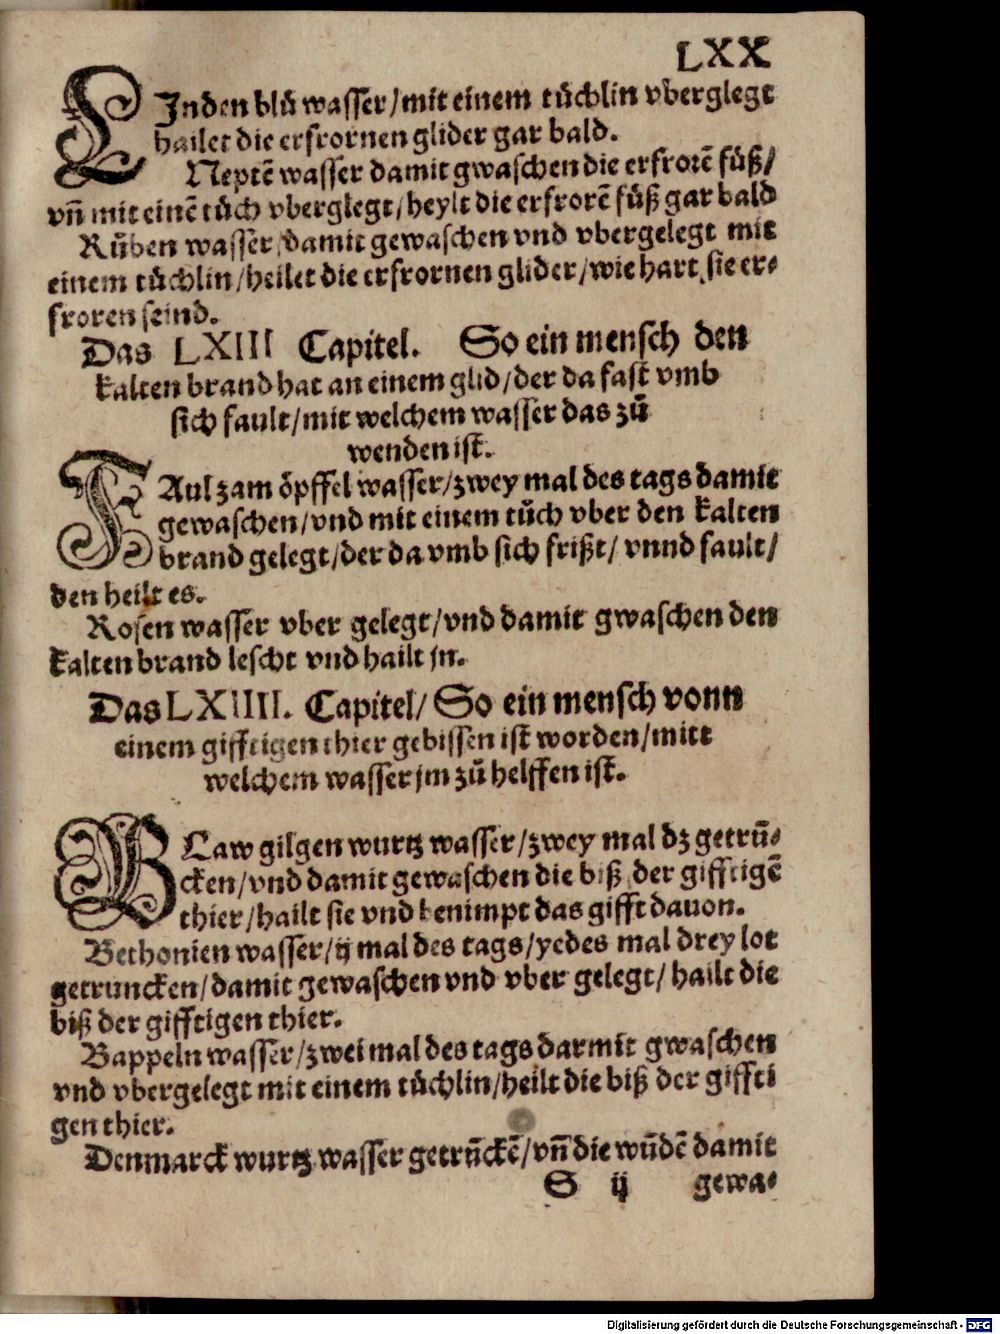 LXX
LInden blů wasser/mit einem tůchlin vberglegt
hailet die erfrornen glider gar bald.
Neptē wasser damit gwaschen die erfrorē füß/
vñ mit einē tůch vberglegt/heylt die erfrorē füß gar bald
Růben wasser/damit gewaschen vnd vbergelegt mit
einem tůchlin/heilet die erfrornen glider/wie hart sie er-
froren seind.
Das LXIII Capitel. So ein mensch den
kalten brand hat an einem glid/der da fast vmb
sich fault/mit welchem wasser das zů
wenden ist.
FAul zam öpffel wasser/zwey mal des tags damit
gewaschen/vnd mit einem tůch vber den kalten
brand gelegt/der da vmb sich frißt/ vnnd fault/
den heilt es.
Rosen wasser vber gelegt/vnd damit gwaschen den
kalten brand lescht vnd hailt jn.
Das LXIIII. Capitel/ So ein mensch vonn
einem gifftigen thier gebissen ist worden/mitt
welchem wasser jm zů helffen ist.
BLaw gilgen wurtz wasser/zwey mal dz getrū-
cken/vnd damit gewaschen die biß der gifftigē
thier/hailt sie vnd benimpt das gifft dauon.
Bethonien wasser/ij mal des tags/yedes mal drey lot
getruncken/damit gewaschen vnd vber gelegt/ hailt die
biß der gifftigen thier.
Bappeln wasser/zwei mal des tags darmit gwaschen
vnd vbergelegt mit einem tůchlin/heilt die biß der giffti
gen thier.
Denmarck wurtz wasser getrūckē/vñ die wūdē damit
S ij gewa-
Digitalisierung gefördert durch die Deutsche Forschungsgemeinschaft - DFG